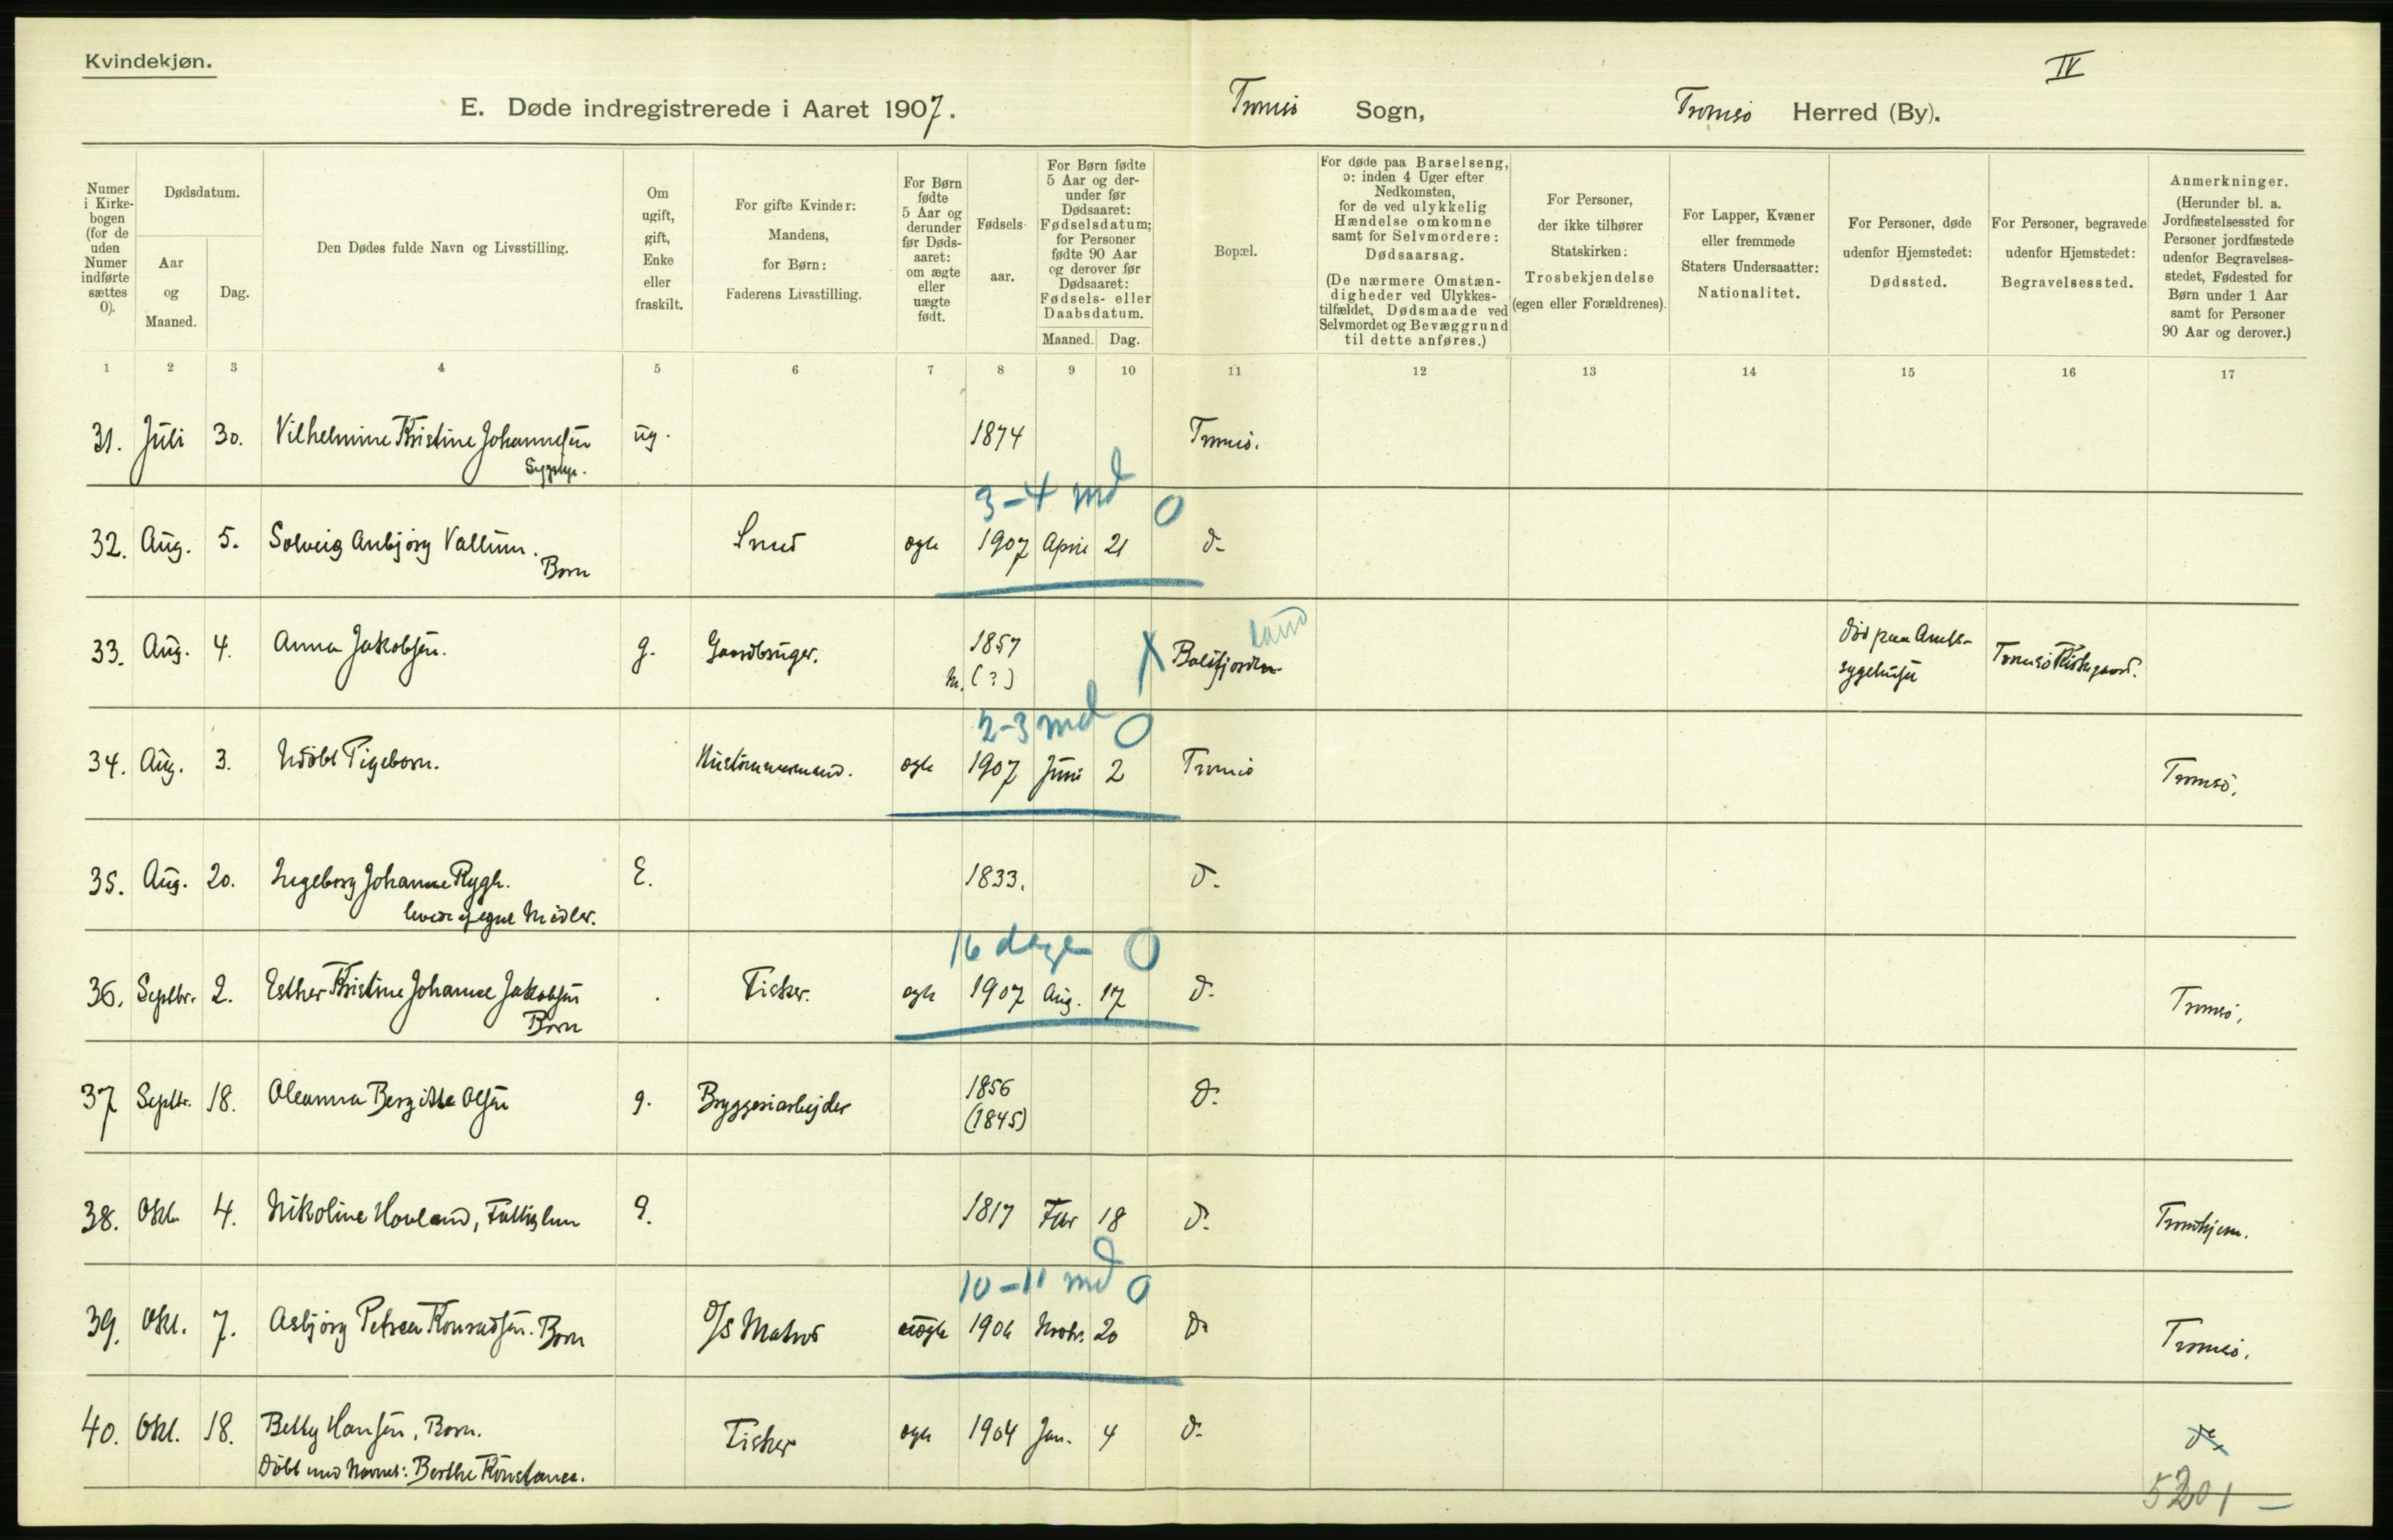 Kvindekjøn.
IV
E. Døde indregistrerede i Aaret 1907.
Tromsö Sogn,
Tromsö Herred (By).
Numer i Kirke-bogen (for de uden Numer indførte sættes 0).
Dødsdatum.
Aar og Maaned.
Dag.
Den Dødes fulde Navn og Livsstilling.
Om ugift, gift, Enke eller fraskilt.
For gifte Kvinder: Mandens, for Børn: Faderens Livsstilling.
For Børn fødte 5 Aar og derunder før Døds-aaret: om ægte eller uægte født.
Fødsels-aar.
For Børn fødte 5 Aar og der-under før Dødsaaret: Fødselsdatum; for Personer fødte 90 Aar og derover før Dødsaaret: Fødsels- eller Daabsdatum.
Maaned. Dag.
Bopæl.
For døde paa Barselseng, ɔ: inden 4 Uger efter Nedkomsten, for de ved ulykkelig Hændelse omkomne samt for Selvmordere: Dødsaarsag.
(De nærmere Omstæn-digheder ved Ulykkes-tilfældet, Dødsmaade ved Selvmordet og Bevæggrund til dette anføres.)
For Personer, der ikke tilhører Statskirken: Trosbekjendelse (egen eller Forældrenes).
For Lapper, Kvæner eller fremmede Staters Undersaatter: Nationalitet.
For Personer, døde udenfor Hjemstedet: Dødssted.
For Personer, begravede udenfor Hjemstedet: Begravelsessted.
Anmerkninger. (Herunder bl. a. Jordfæstelsessted for Personer jordfæstede udenfor Begravelses-stedet, Fødested for Børn under 1 Aar samt for Personer 90 Aar og derover.)
1 2 3 4 5 6 7 8 9 10 11 12 13 14 15 16 17
31. Juli 30. Vilhelmine Kristine Johannesen ug. 1874 Tromsö.
3-4 md 0
32. Aug. 5. Solveig Anbjörg Vallum. Smed ægte 1907 April 21 d-
Barn
land
33. Aug. 4. Anna Jakobsen. g. Gaardbruger. 1857 X Balsfjorden. död paa Amts- Tromsö Kirkegaard.
(?) sygehuset
2-3 md 0
34. Aug. 3. Udöbt Pigebarn. ægte 1907 Juni 2 Tromsö Tromsö.
35. Aug. 20. Ingeborg Johanne Rygh. E. 1833. d-
levede af egne Midler.
16 dage 0
36. Septbr. 2. Esther Kristine Johanne Jakobsen Fisker. ægte 1907 Aug. 17 d- Tromsö.
Barn
37 Septbr. 18. Oleanna Bergitte Olsen g. Bryggeriarbejder 1856 d-
(1845)
38. Okt. 4. Nikoline Hovland, Fattiglem 1817 Febr 18 d- Trondhjem.
10-11 md 0
39. Okt. 7. Asbjörg Petrea Konradsen. Barn Matros uægte 1906 Novbr. 20 d- Tromsö.
40. Okt. 18. Betty Hansen, Barn. Fisker ægte 1904 Jan. 4 d- do
Döbt med Navnet: Berthe Konstance.
5201 -